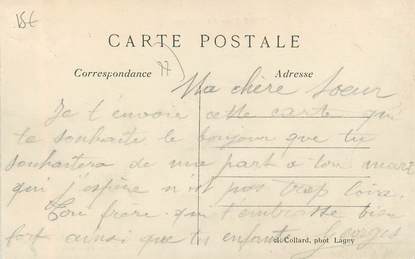 15€
CARTE POSTALE
Correspondance
77
Adresse
Ma chère Soeur
Je t'envoie cette carte qui
te souhaite le bonjour que tu
souhaitera de ma part a ton mari
qui j'espère n'est pas trop loin.
Ton frère qui t'embrasse bien
fort ainsi que tes enfants Georges
Collard, phot Lagny